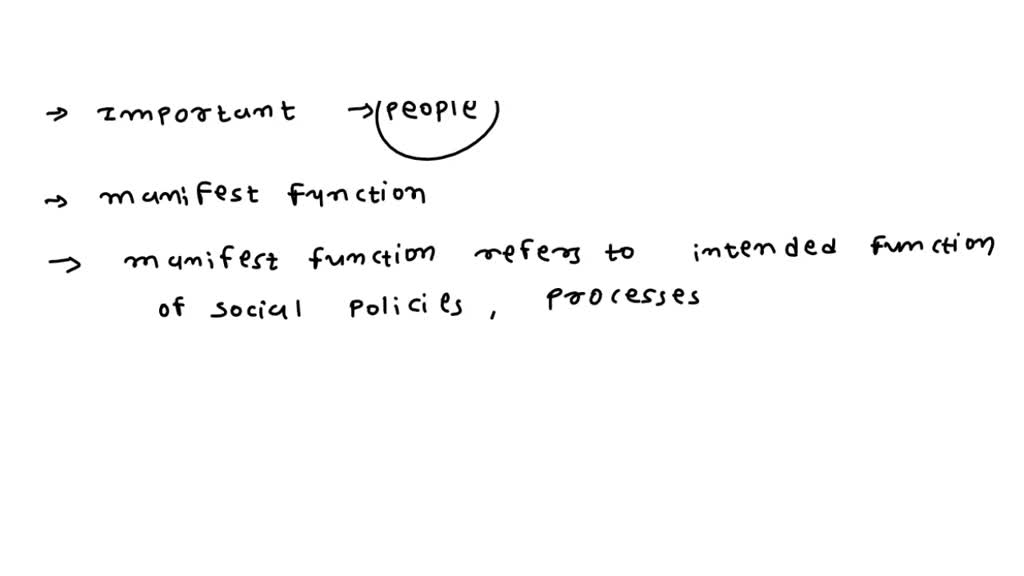 → Important → people
→ manifest function
→ manifest function refers to intended function
of social policies, processes